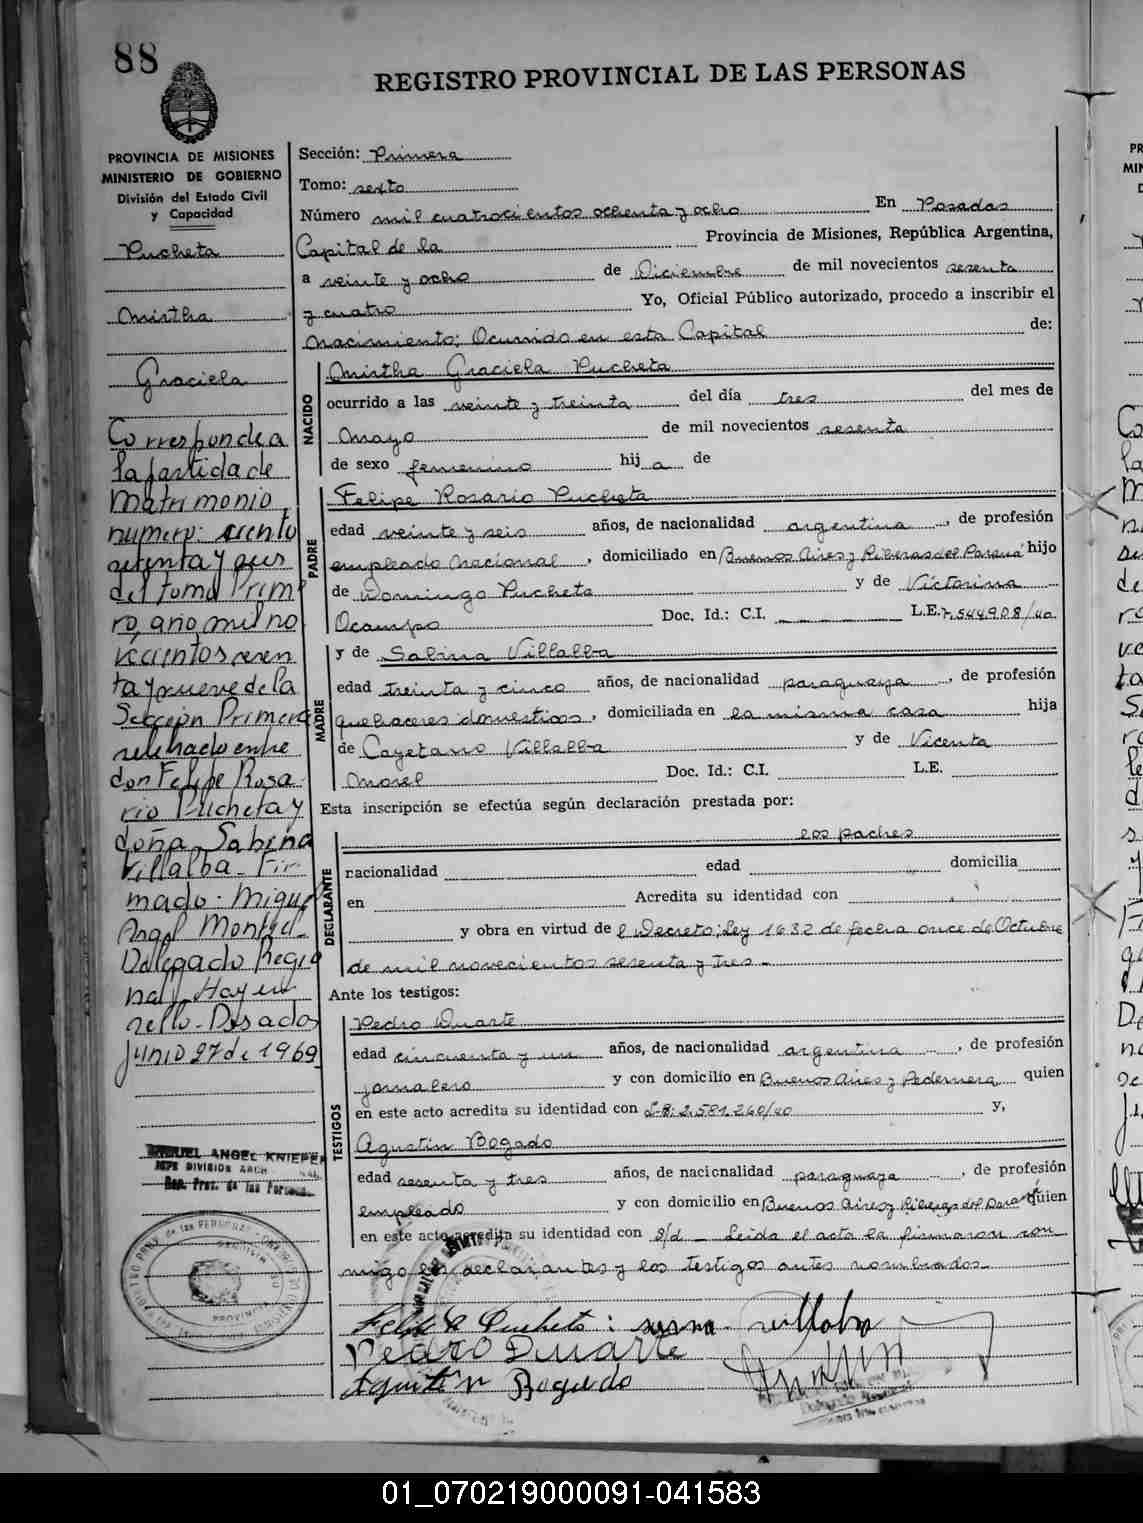 88
REGISTRO PROVINCIAL DE LAS PERSONAS
PROVINCIA DE MISIONES
MINISTERIO DE GOBIERNO
División del Estado Civil
y Capacidad
Pucheta
Mirtha
Graciela
Corresponde a
la partida de
Matrimonio
numero: ciento
setenta y
del tomo Prime
ro, año mil no
vecientos sesen
ta y nueve de la
Sección Primera
celebrado entre
don Felipe Rosa
rio Pucheta y
doña Sabina
Villalba - Fir
mado - Miguel
Angel
Delegado Regio
nal - Hay un
sello - Posadas
Junio 27 de 1969
MIGUEL ANGEL KNIEPER
JEFE DIVISION ARCH
Reg. Prov. de las Personas
Sección: Primera
Tomo: sexto
Número mil cuatrocientos ochenta y ocho En Posadas
Capital de la Provincia de Misiones, República Argentina,
a veinte y ocho de Diciembre de mil novecientos sesenta
y cuatro Yo, Oficial Público autorizado, procedo a inscribir el
Nacimiento; Ocurrido en esta Capital de:
NACIDO
Mirtha Graciela Pucheta
ocurrido a las veinte y treinta del día tres del mes de
Mayo de mil novecientos sesenta
de sexo femenino hij a de
PADRE
Felipe Rosario Pucheta
edad veinte y seis años, de nacionalidad argentina, de profesión
empleado Nacional, domiciliado en Buenos Aires y Riberas del Paraná hijo
de Domingo Pucheta y de Victorina
Ocampo Doc. Id.: C.I. L.E. 7.544.908/40
MADRE
y de Sabina Villalba
edad treinta y cinco años, de nacionalidad paraguaya, de profesión
quehaceres domesticos, domiciliada en la misma casa hija
de Cayetano Villalba y de Vicenta
Morel Doc. Id.: C.I. L.E.
Esta inscripción se efectúa según declaración prestada por:
DECLARANTE
los padres
nacionalidad edad domicilia
en Acredita su identidad con
y obra en virtud de el Decreto; Ley 1632 de fecha once de Octubre
de mil novecientos sesenta y tres -
Ante los testigos:
TESTIGOS
Pedro Duarte
edad cincuenta y un años, de nacionalidad argentina, de profesión
jornalero y con domicilio en Buenos Aires y Pedernera quien
en este acto acredita su identidad con 2.581.260/40 y,
Agustin Bogado
edad sesenta y tres años, de nacionalidad paraguaya, de profesión
empleado y con domicilio en Buenos Aires y Riberas del Paraná quien
en este acto acredita su identidad con s/d - Leida el acta la firmaron con
migo los declarantes y los testigos antes nombrados -
Felipe R Pucheta: Villalba
Pedro Duarte
Agustin Bogado
01_070219000091-041583